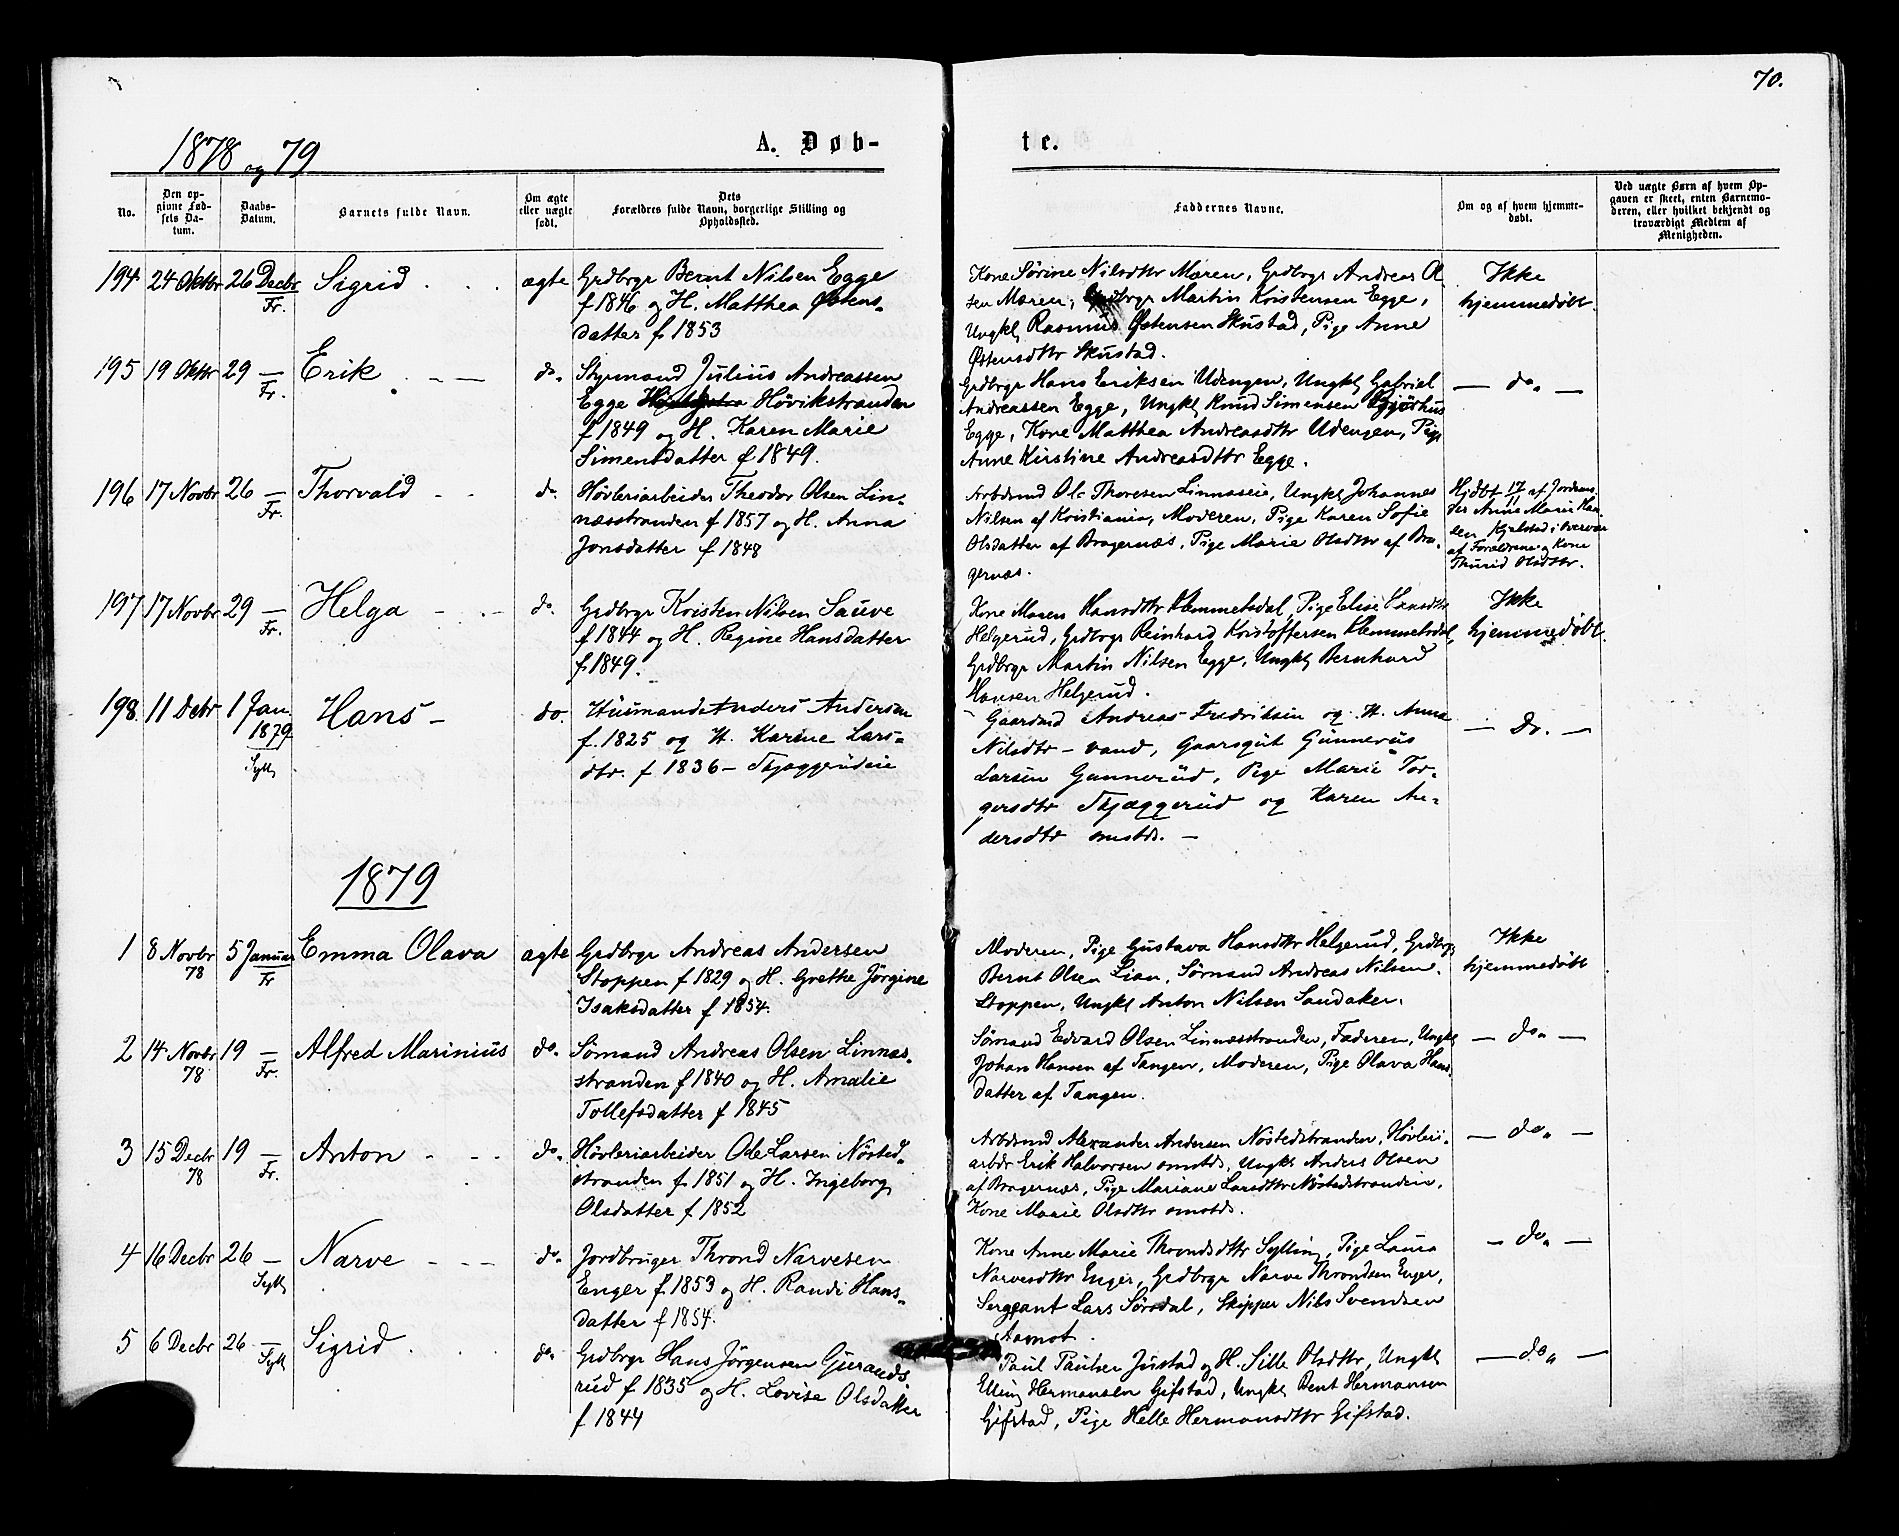 70.
1878 og 79
A. Døb-
te.
No.
Den op-
givne Fød-
sels Da-
tum.
Daabs-
Datum.
Barnets fulde Navn.
Om ægte
eller uægte
født.
Dets
Forældres fulde Navn, borgerlige Stilling og
Opholdssted.
Faddernes Navne.
Om og af hvem hjemme-
døbt.
Ved uægte Børn af hvem Op-
gaven er skeet, enten Barnemo-
deren, eller hvilket bekjendt og
troværdigt Medlem af
Menigheden.
194 24 Oktbr 26 Decbr Fr. Sigrid ægte
Grdbrgr Bernt Nilsen Egge
f 1846 og H. Matthea Østens-
datter f 1853
Kone Sørine Nilsdtr Mæren, Grdbrgr Andreas Ol
sen Mæren, Grdbrgr Martin Kristensen Egge,
Ungkl Rasmus Østensen Skustad, Pige Anne
Østensdtr Skustad.
Ikke
hjemmedøbt.
195 19 Oktbr 29 — Fr. Erik do.
Styrmand Julius Andreassen
Egge Høvikstranden
f 1849 og H. Karen Marie
Simensdatter f 1849.
Grdbrgr Hans Eriksen Udengen, Ungkl Gabriel
Andreassen Egge, Ungkl Knud Simensen
Egge, Kone Matthea Andreasdtr Udengen, Pige
Anne Kirstine Andreasdtr Egge.
— do. —
196 17 Novbr 26 — Fr. Thorvald do.
Høvleriarbeider Theodor Olsen Lin-
næsstranden f 1857 og H. Anna
Jonsdatter f 1848
Arbdsmd Ole Thoresen Linnæseie, Ungkl Johannes
Nilsen af Kristiania, Moderen, Pige Karen Sofie
Olsdatter af Bragernæs, Pige Marie Olsdtr af Bra-
gernæs.
Hjdbt 17/11 af Jordmo
der Anne Marie Han
sen Kjelstad i Overvær
af Forældrene og Kone
Thurid Olsdtr.
197 17 Novbr 29 — Fr. Helga do.
Grdbrgr Kristen Nilsen Sauve
f 1844 og H. Regine Hansdatter
f 1849.
Kone Maren Hansdtr Klemmetsdal, Pige Elise Hansdtr
Helgerud, Grdbrgr Reinhard Kristoffersen Klemmetsdal,
Grdbrgr Martin Nilsen Egge, Ungkl Bernhard
Hansen Helgerud.
Ikke
hjemmedøbt.
198 11 Decbr 1 Jan. 1879 Syll Hans — do.
Husmand Anders Andersen
f. 1825 og H. Karine Lars-
dtr. f 1836 — Skjæggerudeie
Gaardmd Andreas Fredriksen og H. Anna
Nilsdtr — vand, Gaarsgut Gunnerius
Larsen Gunnerud, Pige Marie Tor-
gersdtr Skjæggerud og Karen An-
dersdtr smstds. —
— do. —
1879
1 8 Novbr 78 5 Januar Fr Emma Olava ægte
Grdbrgr Andreas Andersen
Stoppen f 1829 og H. Grethe Jørgine
Isaksdatter f 1854.
Moderen, Pige Gustava Hansdtr Helgerud, Grdbrgr
Bernt Olsen Lian, Sømand Andreas Nilsen
Stoppen, Ungkl Anton Nilsen Sandaker.
Ikke
hjemmedøbt
2 14 Novbr 78 19 — Fr. Alfred Marinius do.
Sømand Andreas Olsen Linnæs-
stranden f 1840 og H. Amalie
Tollefsdatter f 1845
Sømand Edvard Olsen Linnæsstranden, Faderen, Ungkl
Johan Hansen af Tangen, Moderen, Pige Olava Hans-
datter af Tangen.
— do. —
3 15 Decbr 78 19 — Fr. Anton do.
Høvleriarbeider Ole Larsen Nøsted-
stranden f 1851 og H. Ingeborg
Olsdatter f 1852
Arbdsmd Alexander Andersen Nøstedstranden, Høvleri-
arbdr Erik Halvorsen smstds, Ungkl Anders Olsen
af Bragernæs, Pige Mariane Larsdtr Nøstedstranden,
Kone Marie Olsdtr smstds.
— do. —
4 16 Decbr 26 — Syll Narve do.
Jordbruger Thrond Narvesen
Enger f 1853 og H. Randi Hans-
datter f 1854.
Kone Anne Marie Throndsdtr Sylling, Pige Laura
Narvesdtr Enger, Grdbrgr Narve Throndsen Enger,
Sergeant Lars Sørsdal, Skipper Nils Svendsen
Aamot.
— do. —
5 6 Decbr 26 — Syll Sigrid do.
Grdbrgr Hans Jørgensen Gjerands
rud f 1835 og H. Lovise Olsdatter
f 1844
Paul Paulsen Justad og H. Sille Olsdtr, Ungkl
Elling Hermansen Gifstad, Ungkl Bent Hermansen
Gifstad, Pige Helle Hermansdtr Gifstad.
— do. —